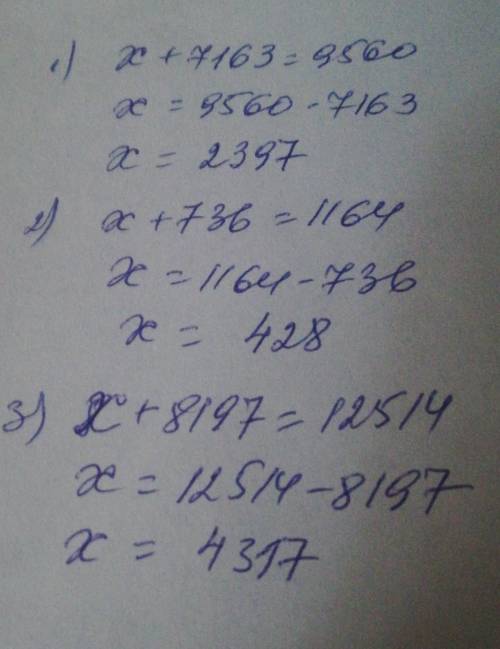 1) x + 7163 = 9560
x = 9560 - 7163
x = 2397
2) x + 736 = 1164
x = 1164 - 736
x = 428
3) x + 8197 = 12514
x = 12514 - 8197
x = 4317